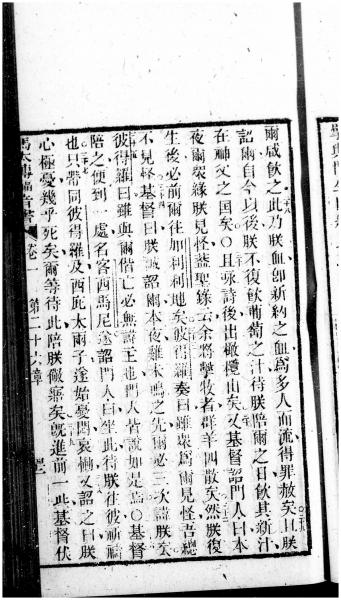 爾咸飲之此乃朕血卽新約之血爲多人而流得罪赦矣且朕
詔爾自今以後朕不復飲葡萄之汁待朕陪爾之日飲其新汁
在神父之国矣〇且咏詩後出橄欖山矣又基督詔門人曰本
夜爾衆緣朕見怪蓋聖錄云余將擊牧者群羊四散矣然朕復
生後必前爾徃加利利地矣彼得羅奏曰雖衆爲爾見怪吾總
不見怪基督曰朕誠詔爾本夜雞未鳴之先爾必三次諱朕矣
彼得羅曰雖與爾偕亡必無諱主他門人皆說如是焉〇基督
陪之便到一處名客西馬尼遂詔門人曰坐此待朕徃彼祈禱
也只帶同彼得羅及西庇太兩子遂始憂悶哀慟又詔之曰朕
心極憂幾乎死矣爾等待此陪朕儆寤矣旣進前一此基督伏
馬太傳福音書 卷一 第二十六章